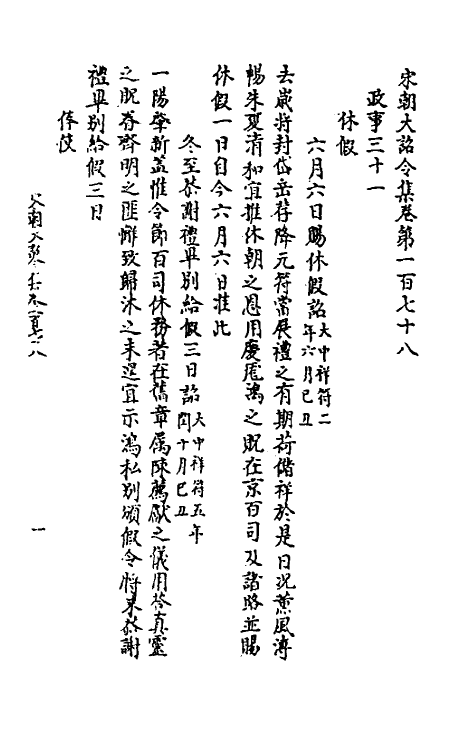 宋朝大詔令集卷第一百七十八
政事三十一
休假
六月六日賜休假詔大中祥符二
年六月己丑
去歲将封岱岳荐降元符當展禮之有期荷偕祥於是日況薰風溥
暢朱夏清和宜推休朝之恩用慶厖鴻之貺在京百司及諸路並賜
休假一日自今六月六日准此
冬至恭謝禮畢別給假三日詔大中祥符五年
閏十月己丑
一陽肇新盖惟令節百司休務著在舊章属陳薦獻之儀用荅真靈
之貺眷齊明之匪懈致歸沐之未遑宜示鴻私別頒假令将来恭謝
禮畢別給假三日
俸仗
一